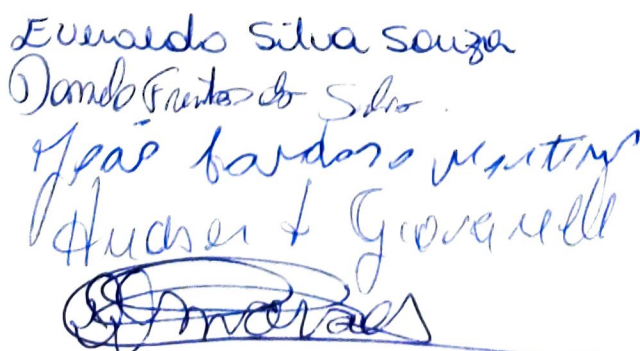 Everaldo Silva Souza
Danilo Freitas da Silva
João Cardoso Martins
Hudson L Giovanelli
Moraes